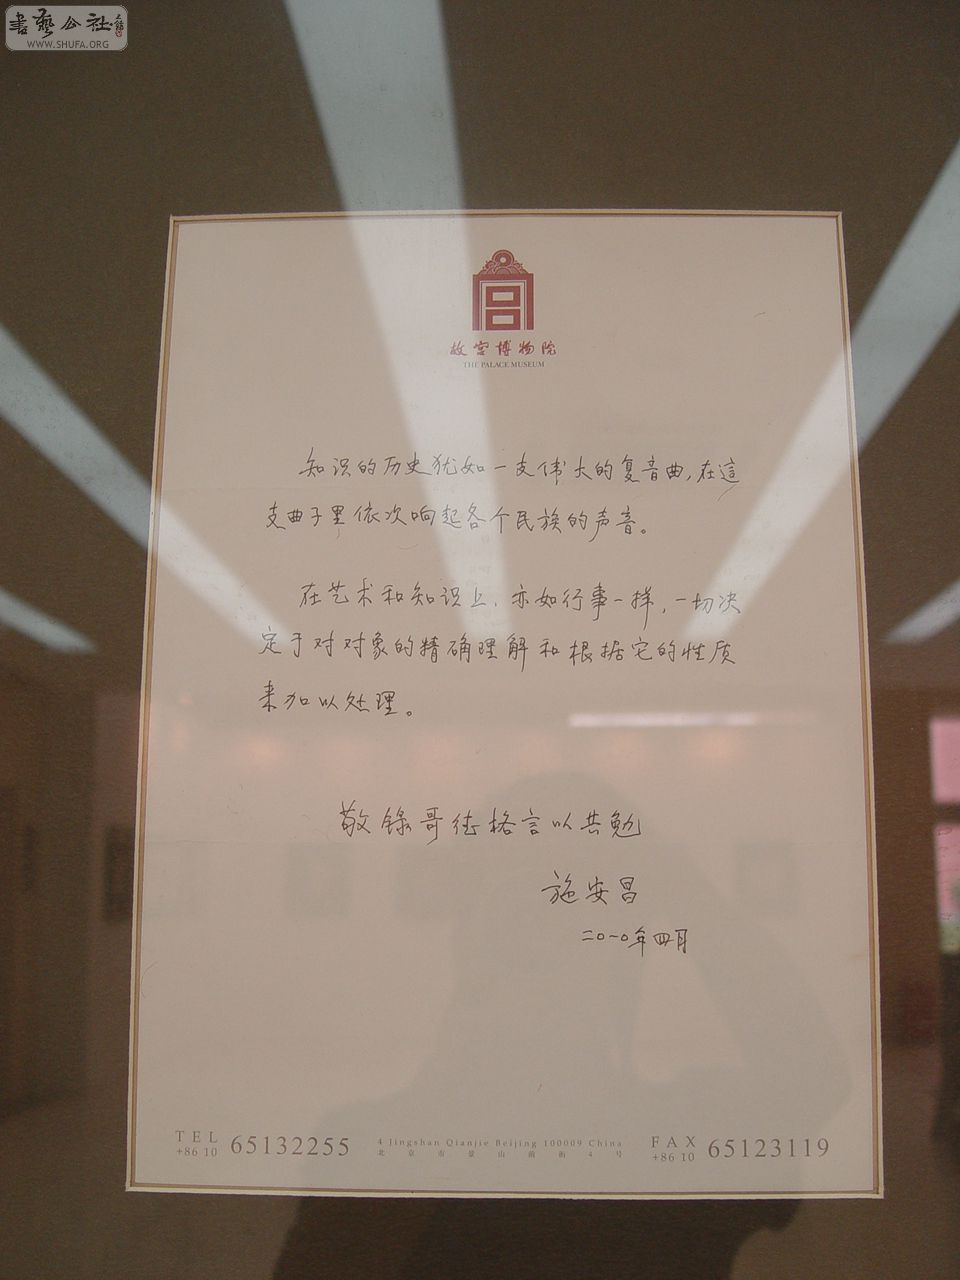 書藝公社
WWW.SHUFA.ORG
故宫博物院
THE PALACE MUSEUM
知识的历史犹如一支伟大的复音曲，在這
支曲子里依次响起各个民族的声音。
在艺术和知识上，亦如行事一样，一切决
定于对对象的精确理解和根据它的性质
来加以处理。
敬錄哥德格言以共勉
施安昌
二〇一〇年四月
TEL
+86 10
65132255
4 Jingshan Qianjie Beijing 100009 China
北京市景山前街4号
FAX
+86 10
65123119